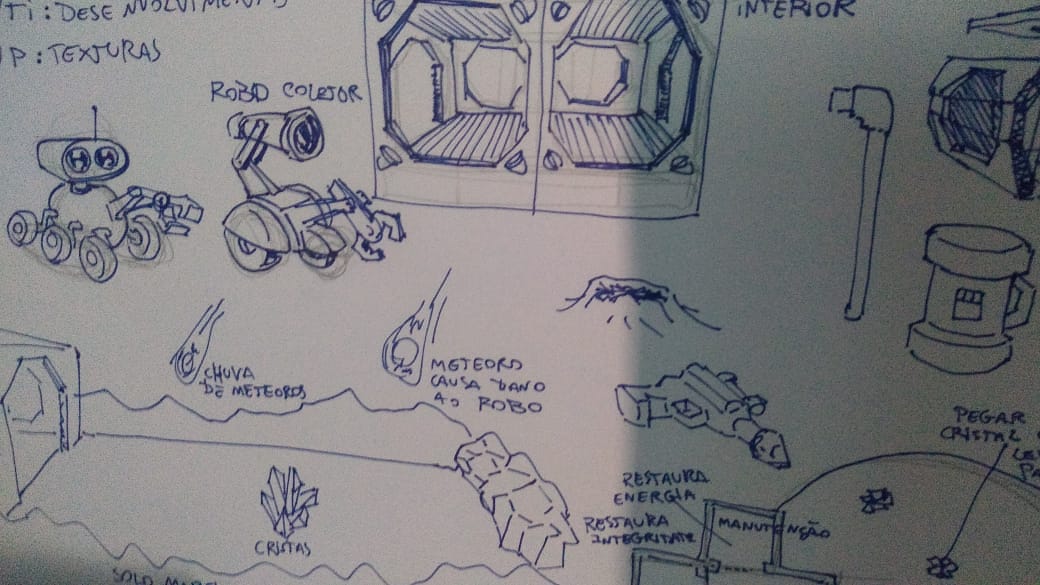 TI: DESENVOLVIMENTO
P: TEXTURAS
ROBO COLETOR
INTERIOR
CHUVA
DE METEOROS
METEORO
CAUSA DANO
AO ROBO
CRISTAS
RESTAURA
ENERGIA
RESTAURA
INTEGRIDADE
MANUTENÇÃO
PEGAR
CRISTAL
SOLO